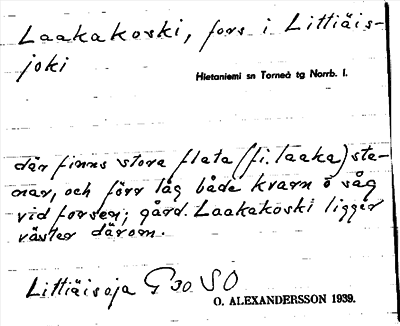 Laakakoski, fors i Littiäis-
joki
Hietaniemi sn Torneå tg Norrb. l.
där finns stora flata (fi. laaka) ste-
nar, och förr låg både kvarn o såg
vid forsen; gård. Laakakoski ligger
väster därom.
Littiäisoja G 30 SO
O. ALEXANDERSSON 1939.